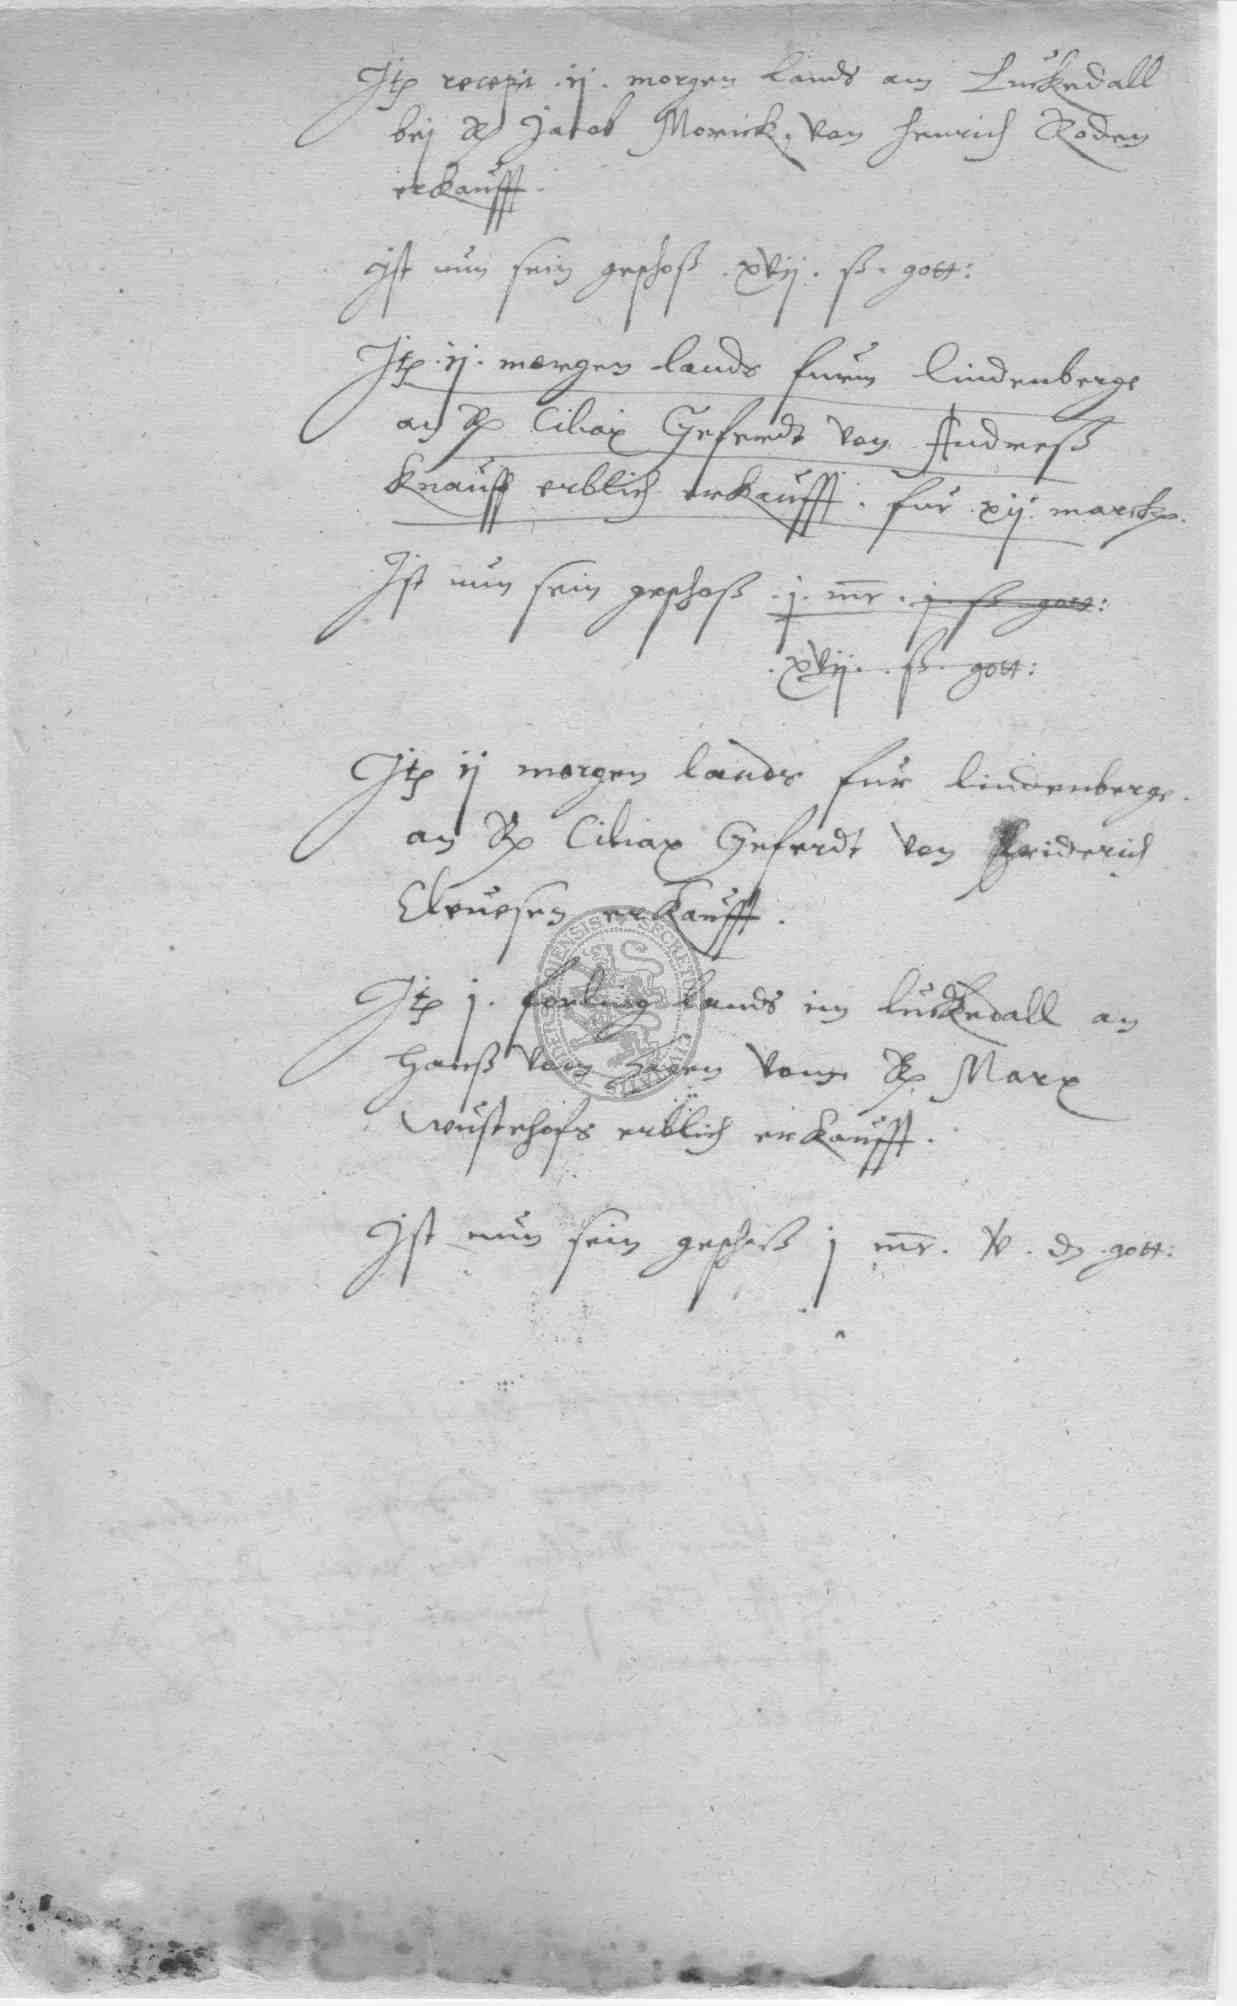 Itp recepit .ij. morgen lands am Luckedall
beij H Jacob Morick, von henrich Roden
erkaufft.
Ist nun sein geschoß .xvij. ß. gott:
Itp .ij. morgen lands furm lindenberge
an H Ciliax Geferdt von Andreß
Knauff erblich erkaufft. fur .xij. marck.
Ist nun sein geschoß .j. mr. j. ß gott:
.xvij. ß. gott:
Itp ij morgen lands fur lindenberge.
an H Ciliax Geferdt von friderich
erkaufft.
Itp j. forling lands im luckedall an
hanß vom hagen vom H Marx
wustehofs erblich erkaufft.
Ist nun sein geschoß j mr. v. d. gott:
SECRETUM